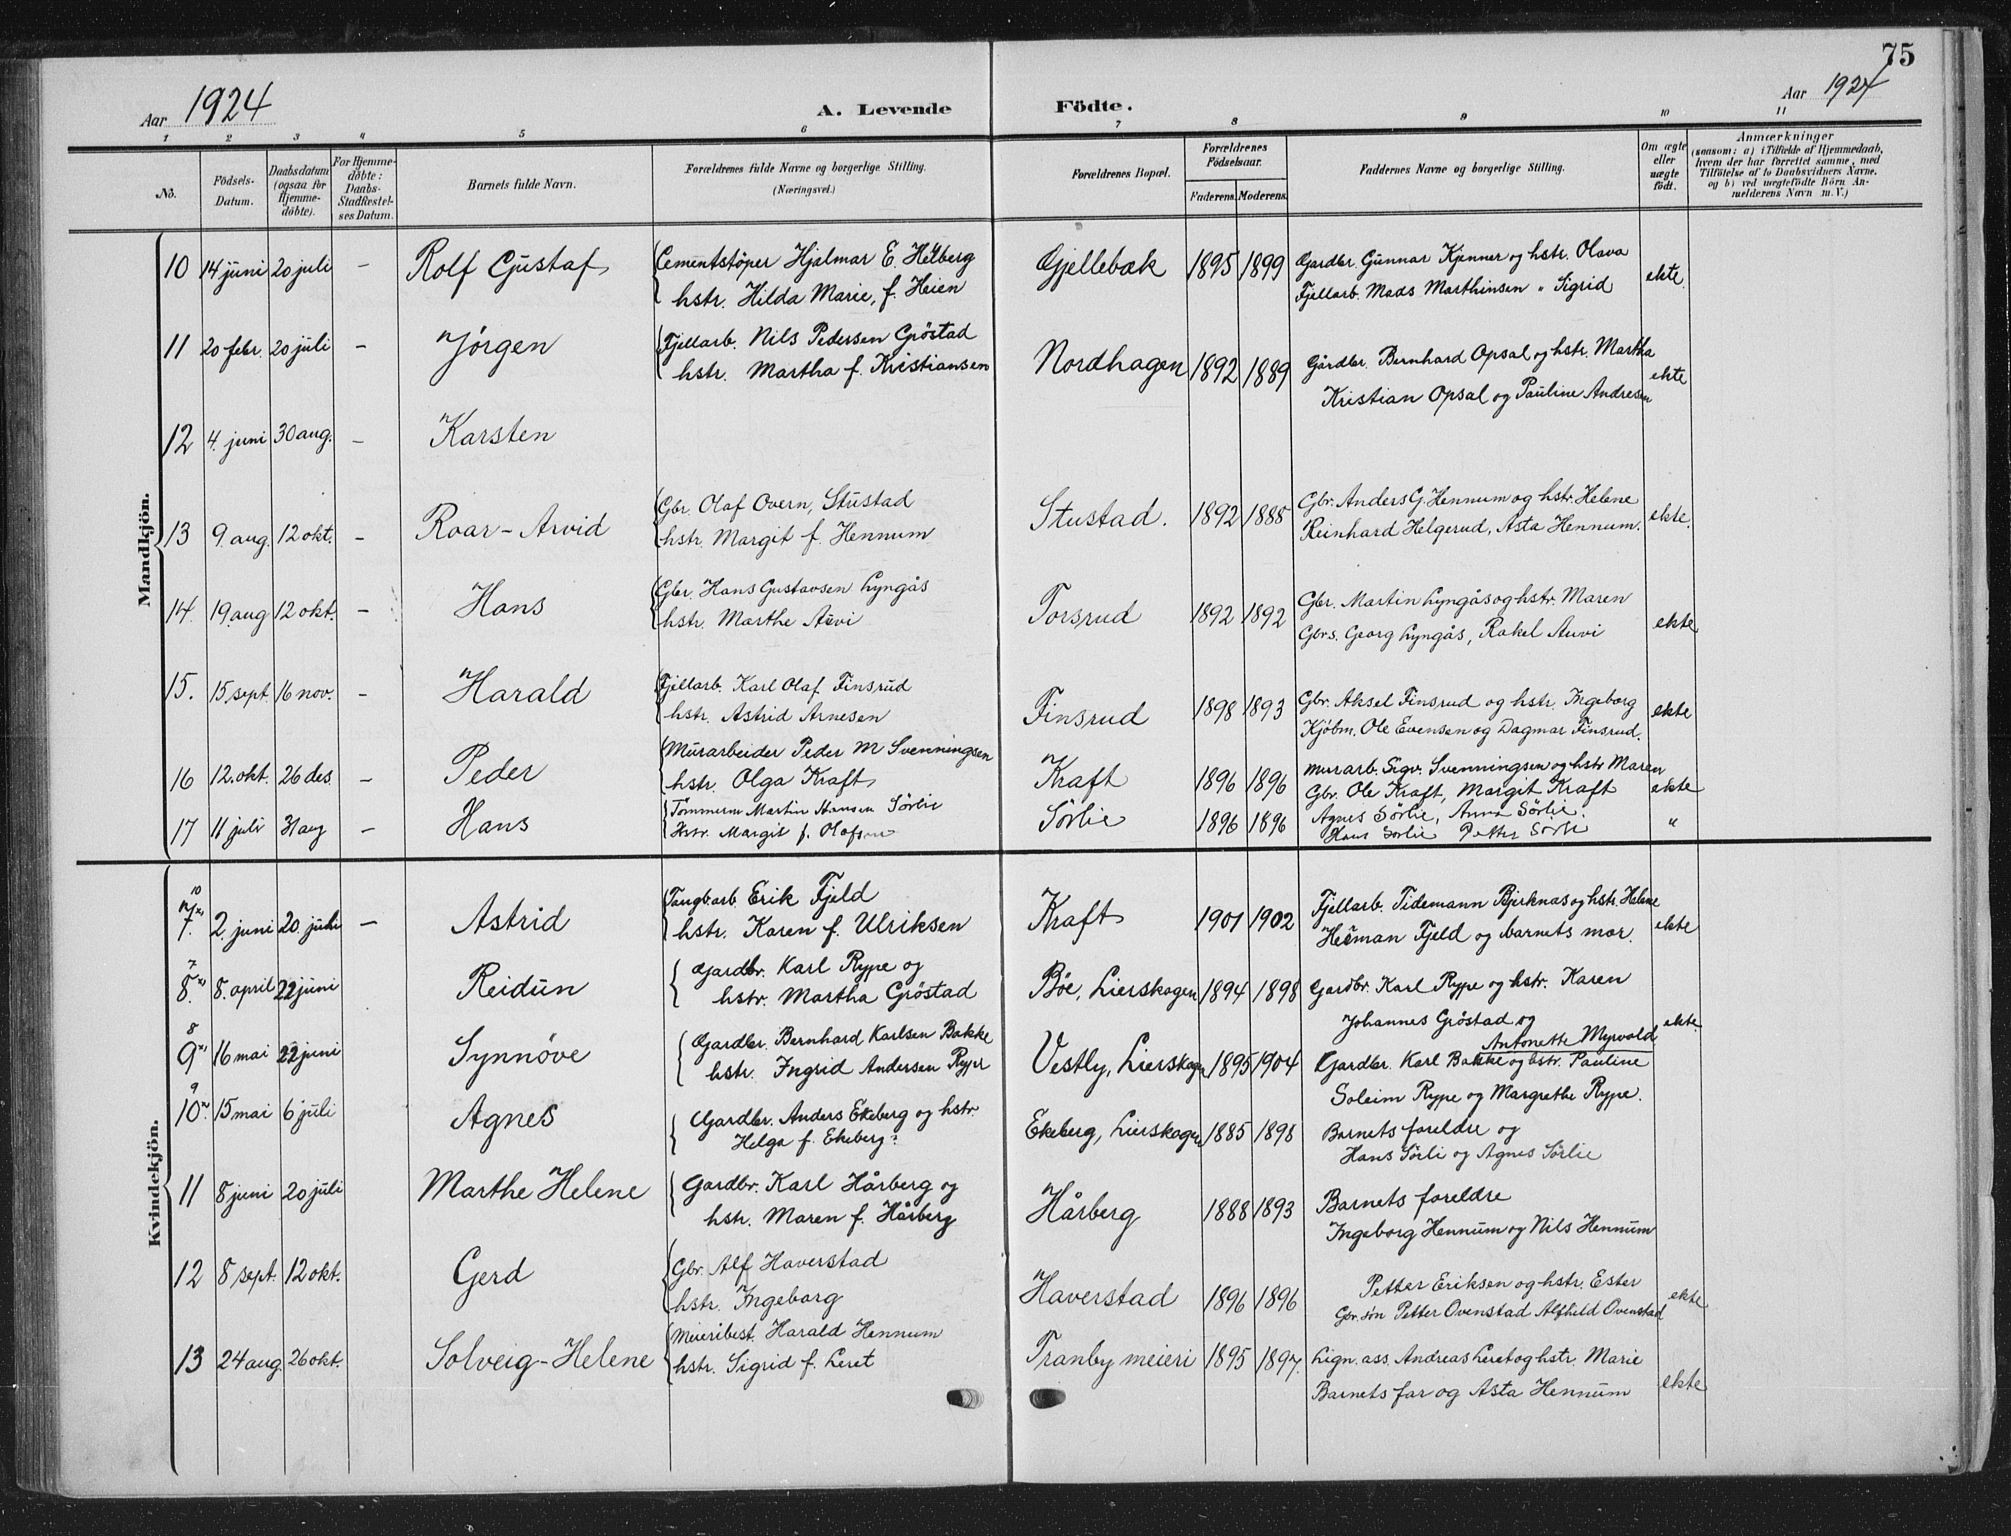 75
Aar 1924
A. Levende Födte.
Aar 1924
1 2 3 4 5 6 7 8 9 10 11
No.
Födsels-Datum.
Daabsdatum (ogsaa för Hjemme-döbte).
For Hjemme-döbte: Daabs-Stadfæstel-ses Datum.
Barnets fulde Navn.
Forældrenes fulde Navne og borgerlige Stilling. (Næringsvei.)
Forældrenes Bopæl.
Forældrenes Födselsaar.
Faderens. Moderens.
Faddernes Navne og borgerlige Stilling.
Om ægte eller uægte födt.
Anmærkninger
(saasom: a) i Tilfælde af Hjemmedaab,
hvem der har forrettet samme, med
Tilföielse af to Daabsvidners Navne.
og b) ved uægtefödte Börn An-
melderens Navn m. V.)
Mandkjön.
10 14 juni 20 juli – Rolf Gustaf Cementstøper Hjalmar E. Helberg
hstr. Hilda Marie, f. Heien
Gjellebæk 1895 1899 Gardbr. Gunnar Kjenner og hstr. Olava
Fjellarb. Mads Marthinsen " Sigrid ekte.
11 20 febr. 20 juli – Jørgen Fjellarb. Nils Pedersen Gröstad
hstr. Martha f. Kristiansen
Nordhagen 1892 1889 Gårdbr. Bernhard Opsal og hstr. Martha
Kristian Opsal og Pauline Andresen ekte
12 4. juni 30 aug. – Karsten
13 9 aug. 12 okt. – Roar-Arvid Gbr. Olaf Overn, Stustad
hstr. Margit f. Hennum
Stustad. 1892 1888 Gbr. Anders G. Hennum og hstr. Helene
Reinhard Helgerud, Asta Hennum. ekte.
14 19 aug 12 okt. – Hans Gbr. Hans Gustavsen Lyngås
hstr. Marthe Auvi
Torsrud 1892 1892 Gbr. Martin Lyngås og hstr. Maren
Gbrs. Georg Lyngås, Rakel Auvi ekte
15. 15 sept. 16 nov. – Harald Fjellarb. Karl Olaf Finsrud
hstr. Astrid Arnesen
Finsrud 1898 1893 Gbr. Aksel Finsrud og hstr. Ingeborg
Kjöbm. Ole Evensen og Dagmar Finsrud. ekte
16 12. okt. 26 des. – Peder Murarbeider Peder M Svenningsen
hstr. Olga Kraft
Kraft 1896 1896 Murarb. Sigv. Svenningsen og hstr Maren
Gbr. Ole Kraft, Margit Kraft ekte
17 11 juli 31 aug – Hans Tömmerm Martin Hansen Sörlie
Hstr. Margit f. Olafsen
Sörlie 1896 1896 Agnes Sörlie, Anna Sörlie.
Hans Sörlie Petter Sörli "
Kvindekjön.
10
7. 2. juni 20. juli – Astrid Fangb.arb. Erik Fjeld
hstr. Karen f. Ulriksen
Kraft 1901 1902 Fjellarb. Tidemann Bjerknas og hstr. Helene
Herman Fjeld og barnets mor. ekte
7
8. 8. april 22 juni Reidun Gardbr. Karl Rype og
hstr. Martha Gröstad
Bøe, Lierskogen 1894 1898 Gardbr. Karl Rype og hstr. Karen
Johannes Gröstad og
Antonette Myrvold ekte.
8
9 16 mai 22 juni Synnöve Gardbr. Bernhard Karlsen Bakke
hstr. Ingrid Andersen Rype
Vestly, Lierskogen 1895 1904 Gardbr. Karl Bakke og hstr. Pauline
Soleim Rype og Margrethe Rype.
9
10 15 mai 6 juli Agnes Gardbr. Anders Ekeberg og hstr.
Helga f. Ekeberg?
Ekeberg, Lierskogen 1885 1898 Barnets foreldre og
Hans Sörli og Agnes Sörlie
11 8 juni 20 juli Marthe Helene Gardbr. Karl Hårberg og
hstr. Maren f. Hårberg
Hårberg 1888 1893 Barnets foreldre
Ingeborg Hennum og Nils Hennum
12 8 sept. 12 okt. Gerd Gbr. Alf Haverstad
hstr. Ingeborg
Haverstad 1896 1896 Petter Eriksen og hstr. Ester
Gbr. sön Petter Ovenstad Alfhild Ovenstad ekte
13 24 aug. 26 okt. Solveig-Helene Meieribest. Harald Hennum
hstr. Sigrid f. Leret
Tranby meieri 1895 1897. Lign. ass. Andreas Leret og hstr. Marie
Barnets far og Asta Hennum ekte